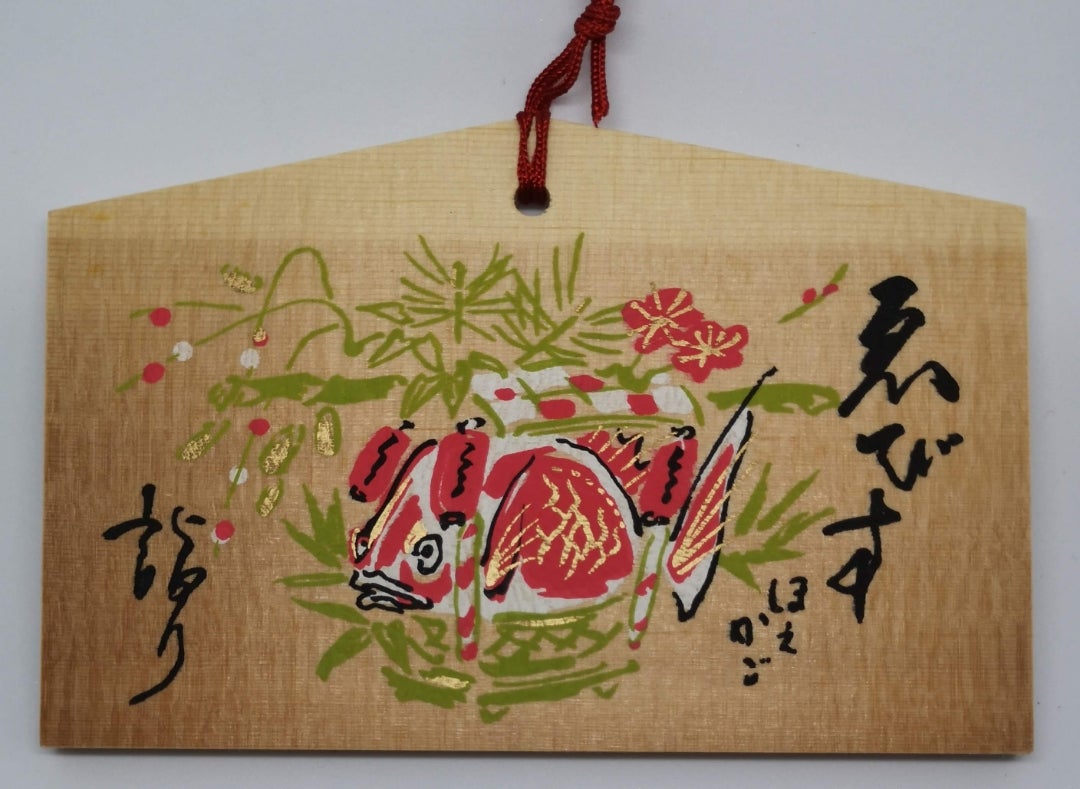 ゑびす
ほえ
かご
詣り